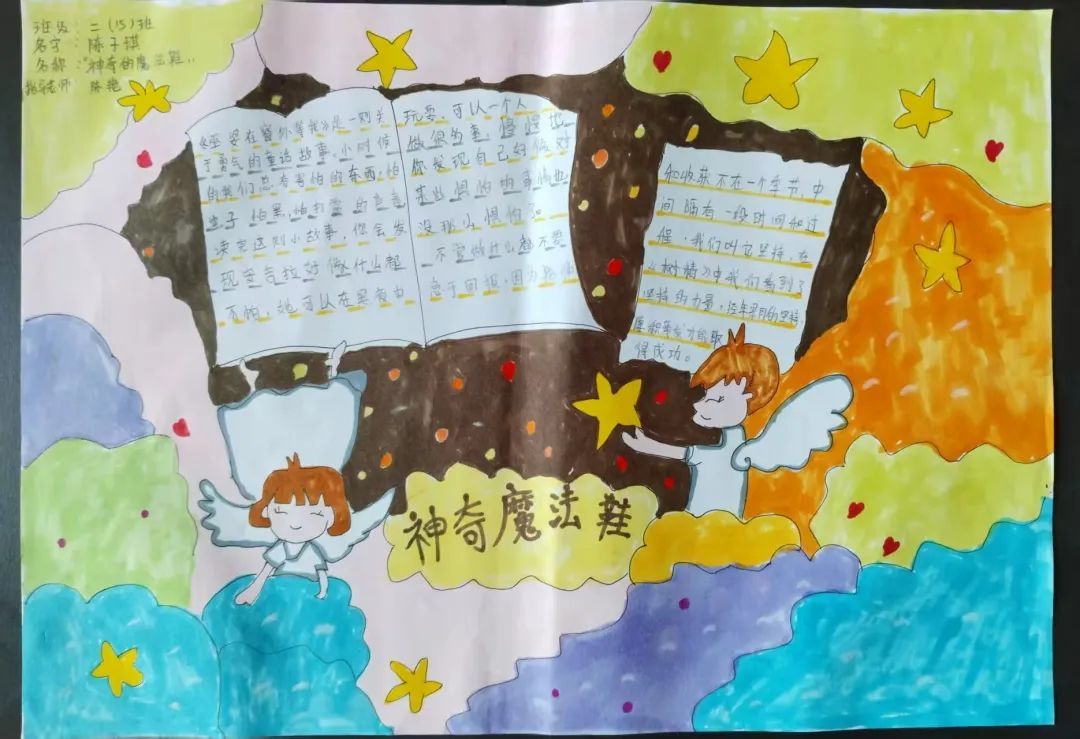 班级：二（15）班
名字：陈子琪
名称："神奇的魔法鞋"
指导老师 陈艳
《巫婆在窗外等我》是一则关
于勇气的童话故事，小时候
的我们总有害怕的东西，怕
虫子，怕黑，怕打雷的声音
读完这则小故事，你会发
现安吉拉好像什么都
不怕，她可以在黑夜中
玩耍，可以一个人
做很多事，慢慢地
你发现自己好像对
某些惧怕的事情也
没那么惧怕了
不管做什么都不要
急于回报，因为播种
和收获不在一个季节，中
间隔有一段时间和过
程，我们叫它坚持，在
《树精》中我们看到了
坚持的力量，经年累月的坚持
厚积薄发才能取
得成功。
神奇魔法鞋